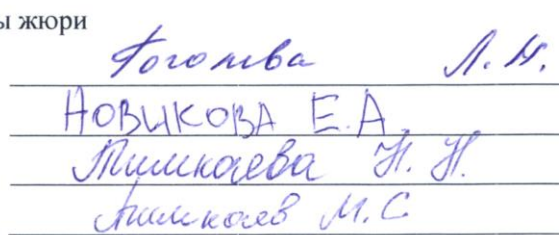 ы жюри
Гоголева Л. Н.
НОВИКОВА Е.А.
Тимкаева Н. Н.
Тимкаев М.С